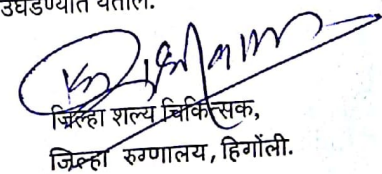 उघडण्यात येतील.
जिल्हा शल्य चिकित्सक,
जिल्हा रुग्णालय, हिगोंली.